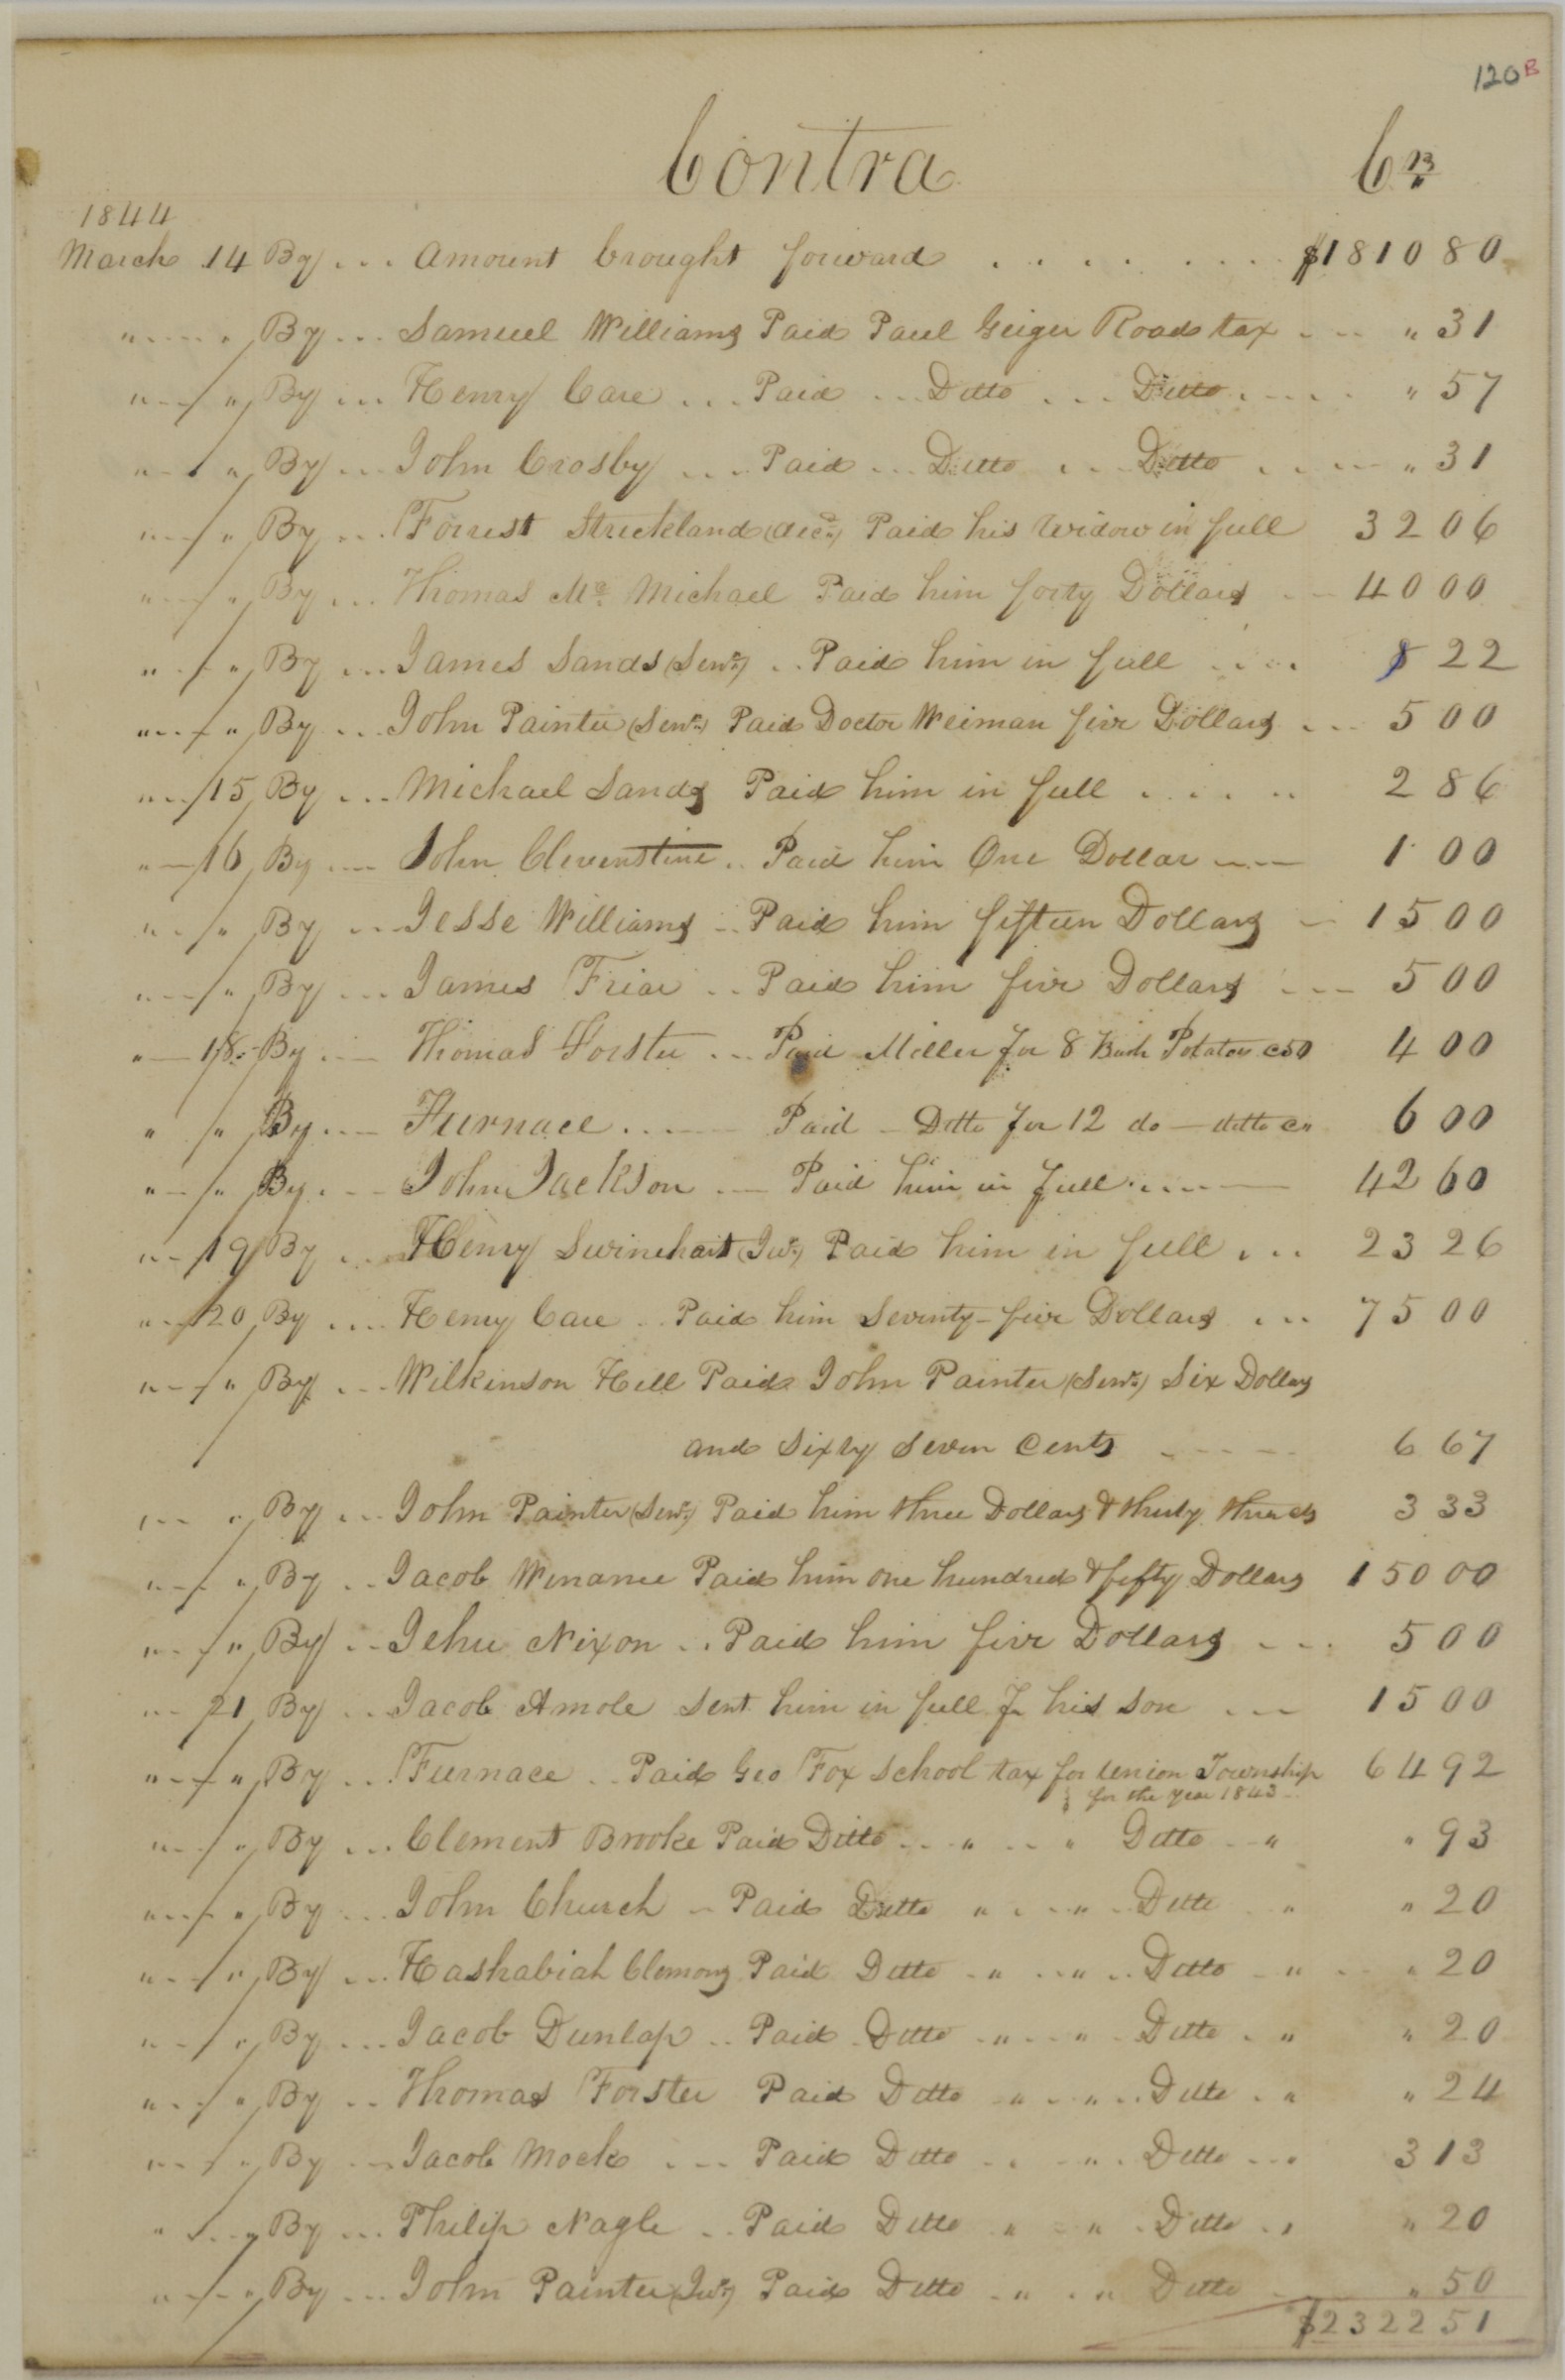 120 B
Contra Cr
1844
March 14 By ... Amount brought forward . . . . . . . . $1810 80
" .... " By ... Samuel Williams Paid Paul Geiger Road tax ... " 31
" .. " By ... Henry Care ... Paid ... Ditto ... Ditto .... " 57
" .. " By ... John Crosby ... Paid ... Ditto ... Ditto .... " 31
" .. " By ... Forrest Strickland (decd) Paid his widow in full 32 06
" .. " By ... Thomas Mc Michael Paid him forty Dollars .. 40 00
" .. " By ... James Sands (Senr) .. Paid him in full .... 8 22
" .. " By ... John Painter (Senr) Paid Doctor Weiman five Dollars ... 5 00
" .. 15 By ... Michael Sands Paid him in full . . . .. 2 86
" — 16 By ... John Clevenstine .. Paid him One Dollar — 1 00
" .. " By ... Jesse Williams .. Paid him fifteen Dollars .. 15 00
" .. " By ... James Friar .. Paid him five Dollars ... 5 00
" — 18 By ... Thomas Forster ... Paid Miller for 8 Bush Potatoes c50 4 00
" " By ... Furnace ..... Paid — Ditto for 12 do — ditto c" 6 00
" — " By ... John Jackson .— Paid him in full ..... 42 60
" .. 19 By ... Henry Swinehart (Junr) Paid him in full ... 23 26
" .. 20 By ... Henry Care .. Paid him Seventy-five Dollars ... 75 00
" .. " By ... Wilkinson Hill Paid John Painter (Senr) Six Dollars
and Sixty Seven Cents ..... 6 67
" .. " By ... John Painter (Senr) Paid him three Dollars & thirty three cts 3 33
" .. " By .. Jacob Winance Paid him one hundred & fifty Dollars 150 00
" .. " By .. Jehu Nixon .. Paid him five Dollars ... 5 00
" .. 21 By .. Jacob Amole Sent him in full for his son ... 15 00
" .. " By .. Furnace .. Paid Geo Fox School tax for Union Township 64 92
for the year 1843
" .. " By ... Clement Brooke Paid Ditto .. " .. " Ditto .. " " 93
" .. " By ... John Church .. Paid Ditto " .. " .. Ditto .. " " 20
" .. " By ... Hashabiah Clemons Paid Ditto .. " .. " .. Ditto .. " .. " 20
" .. " By ... Jacob Dunlap .. Paid Ditto .. " .. " Ditto .. " " 20
" .. " By .. Thomas Forster Paid Ditto " .. " .. Ditto .. " " 24
" .. " By .. Jacob Mock ... Paid Ditto .. " .. Ditto ... 3 13
" .. " By ... Philip Nagle .. Paid Ditto " .. " .. Ditto .. " 20
" .. " By ... John Painter (Junr) Paid Ditto .. " .. " Ditto " 50
$2322 51